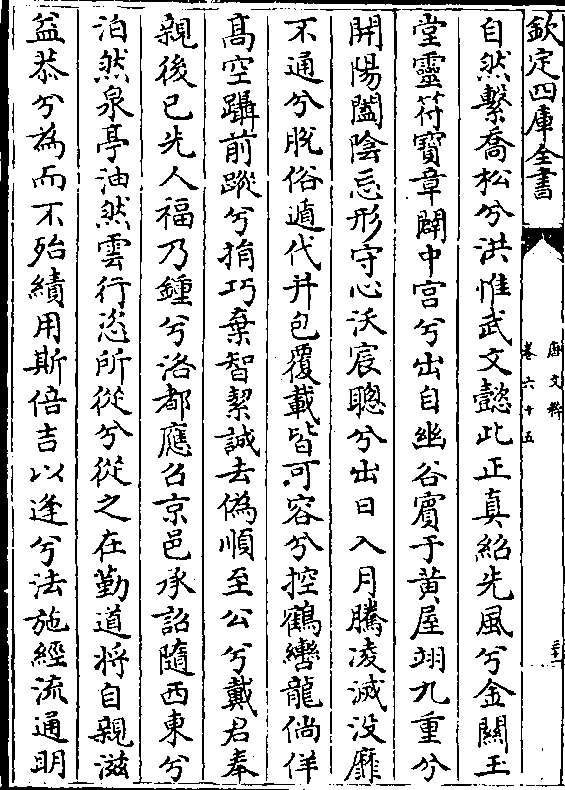 欽定四庫全書
唐文粹
卷六十五
自然繫喬松兮洪惟武文懿此正真紹先風兮金闕玉
堂靈符寶章闢中宫兮出自幽谷賓于黄屋翊九重兮
開陽闔陰忘形守心沃宸聰兮出日入月騰凌滅没靡
不通兮脫俗遁代并包覆載皆可容兮控鶴轡龍倘佯
髙空躡前蹤兮捐巧棄智絜誠去偽順至公兮戴君奉
親後已先人福乃鍾兮洛都應召京邑承詔隨西東兮
泊然泉亭油然雲行恣所從兮從之在勤道將自親滋
益恭兮為而不殆績用斯倍吉以逢兮法施經流通明